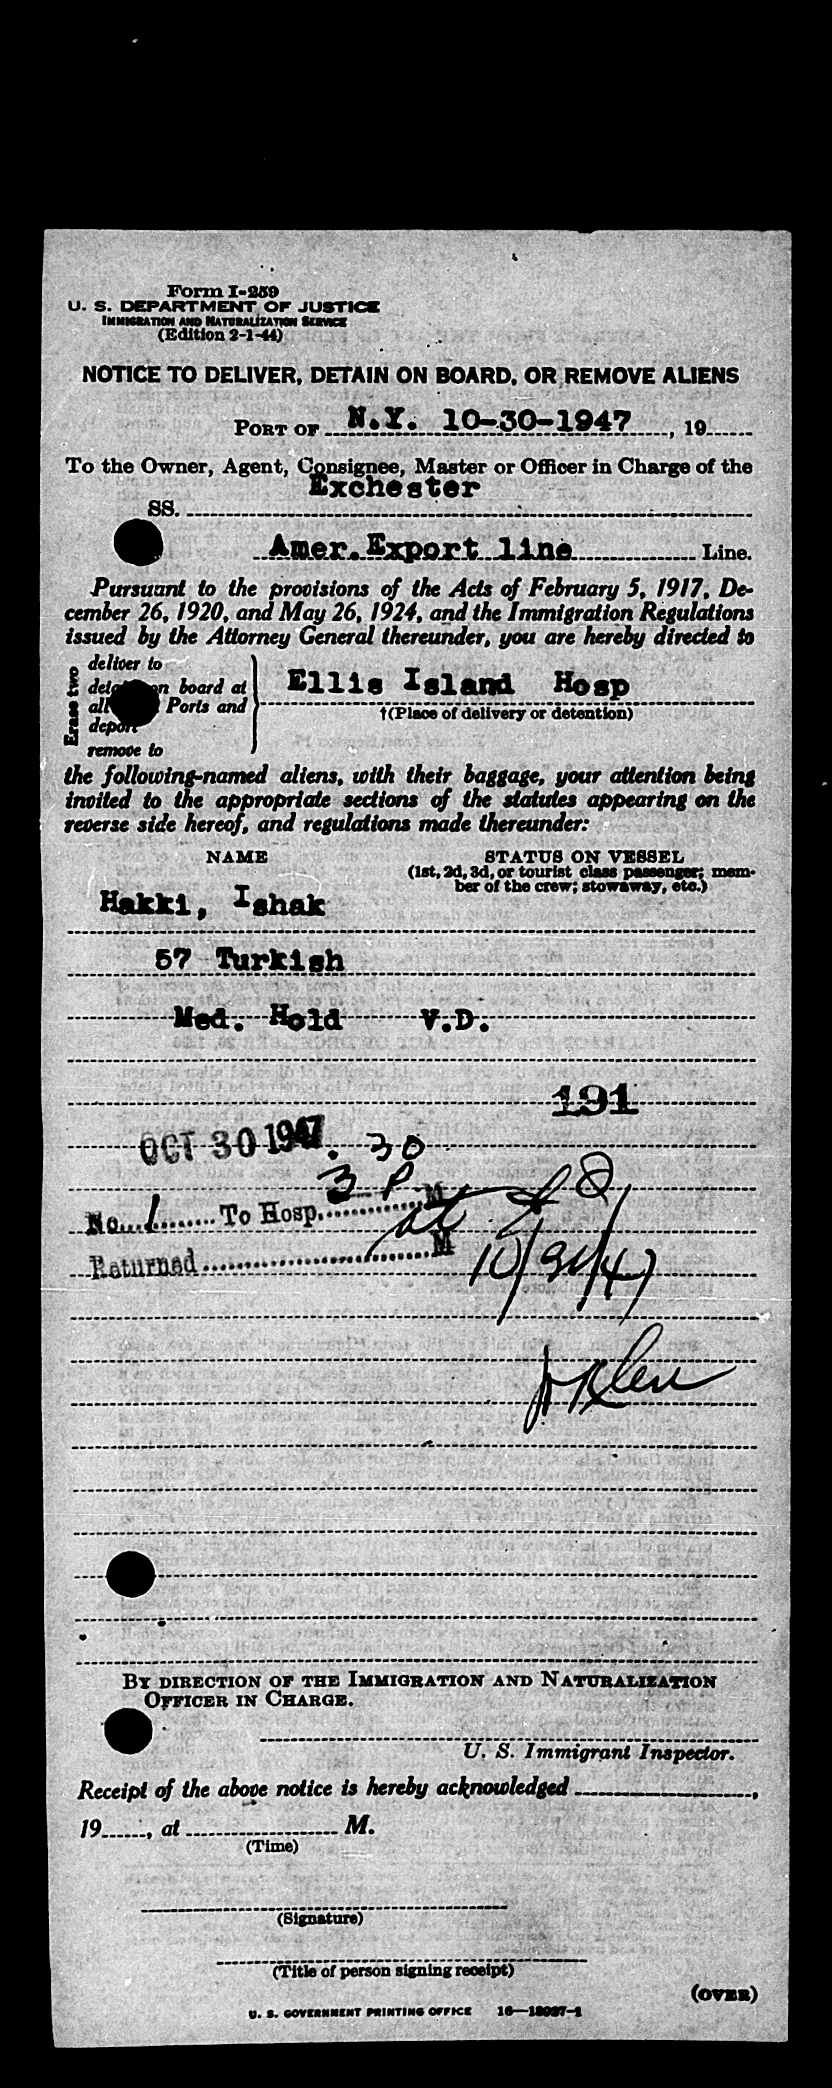 Form I-259
U. S. DEPARTMENT OF JUSTICE
IMMIGRATION AND NATURALIZATION SERVICE
(Edition 2-1-44)
NOTICE TO DELIVER, DETAIN ON BOARD, OR REMOVE ALIENS
PORT OF N.Y. 10-30-1947, 19
To the Owner, Agent, Consignee, Master or Officer in Charge of the
SS. Exchester
Amer. Export line Line.
Pursuant to the provisions of the Acts of February 5, 1917, De-
cember 26, 1920, and May 26, 1924, and the Immigration Regulations
issued by the Attorney General thereunder, you are hereby directed to
Erase two
deliver to
on board at
all Ports and
deport
remove to
Ellis Island Hosp
†(Place of delivery or detention)
the following-named aliens, with their baggage, your attention being
invited to the appropriate sections of the statutes appearing on the
reverse side hereof, and regulations made thereunder:
NAME
STATUS ON VESSEL
(1st, 2d, 3d, or tourist class passenger; mem-
ber of the crew; stowaway, etc.)
Hakki, Ishak
57 Turkish
Med. Hold V.D.
191
OCT 30 1947
3 30 P M
No. 1 To Hosp.
Returned M
BY DIRECTION OF THE IMMIGRATION AND NATURALIZATION
OFFICER IN CHARGE.
U. S. Immigrant Inspector.
Receipt of the above notice is hereby acknowledged ,
19 , at M.
(Time)
(Signature)
(Title of person signing receipt)
(OVER)
U. S. GOVERNMENT PRINTING OFFICE